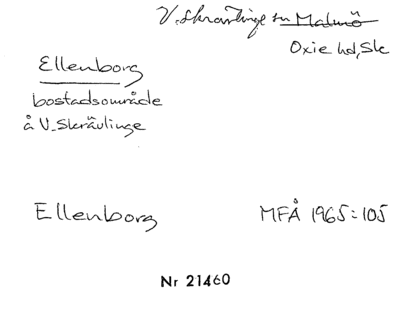 V. Skrävlinge sn Malmö
Oxie hd, Sk
Ellenborg
bostadsområde
å V. Skrävlinge
Ellenborg MFÅ 1965:105
Nr 21460